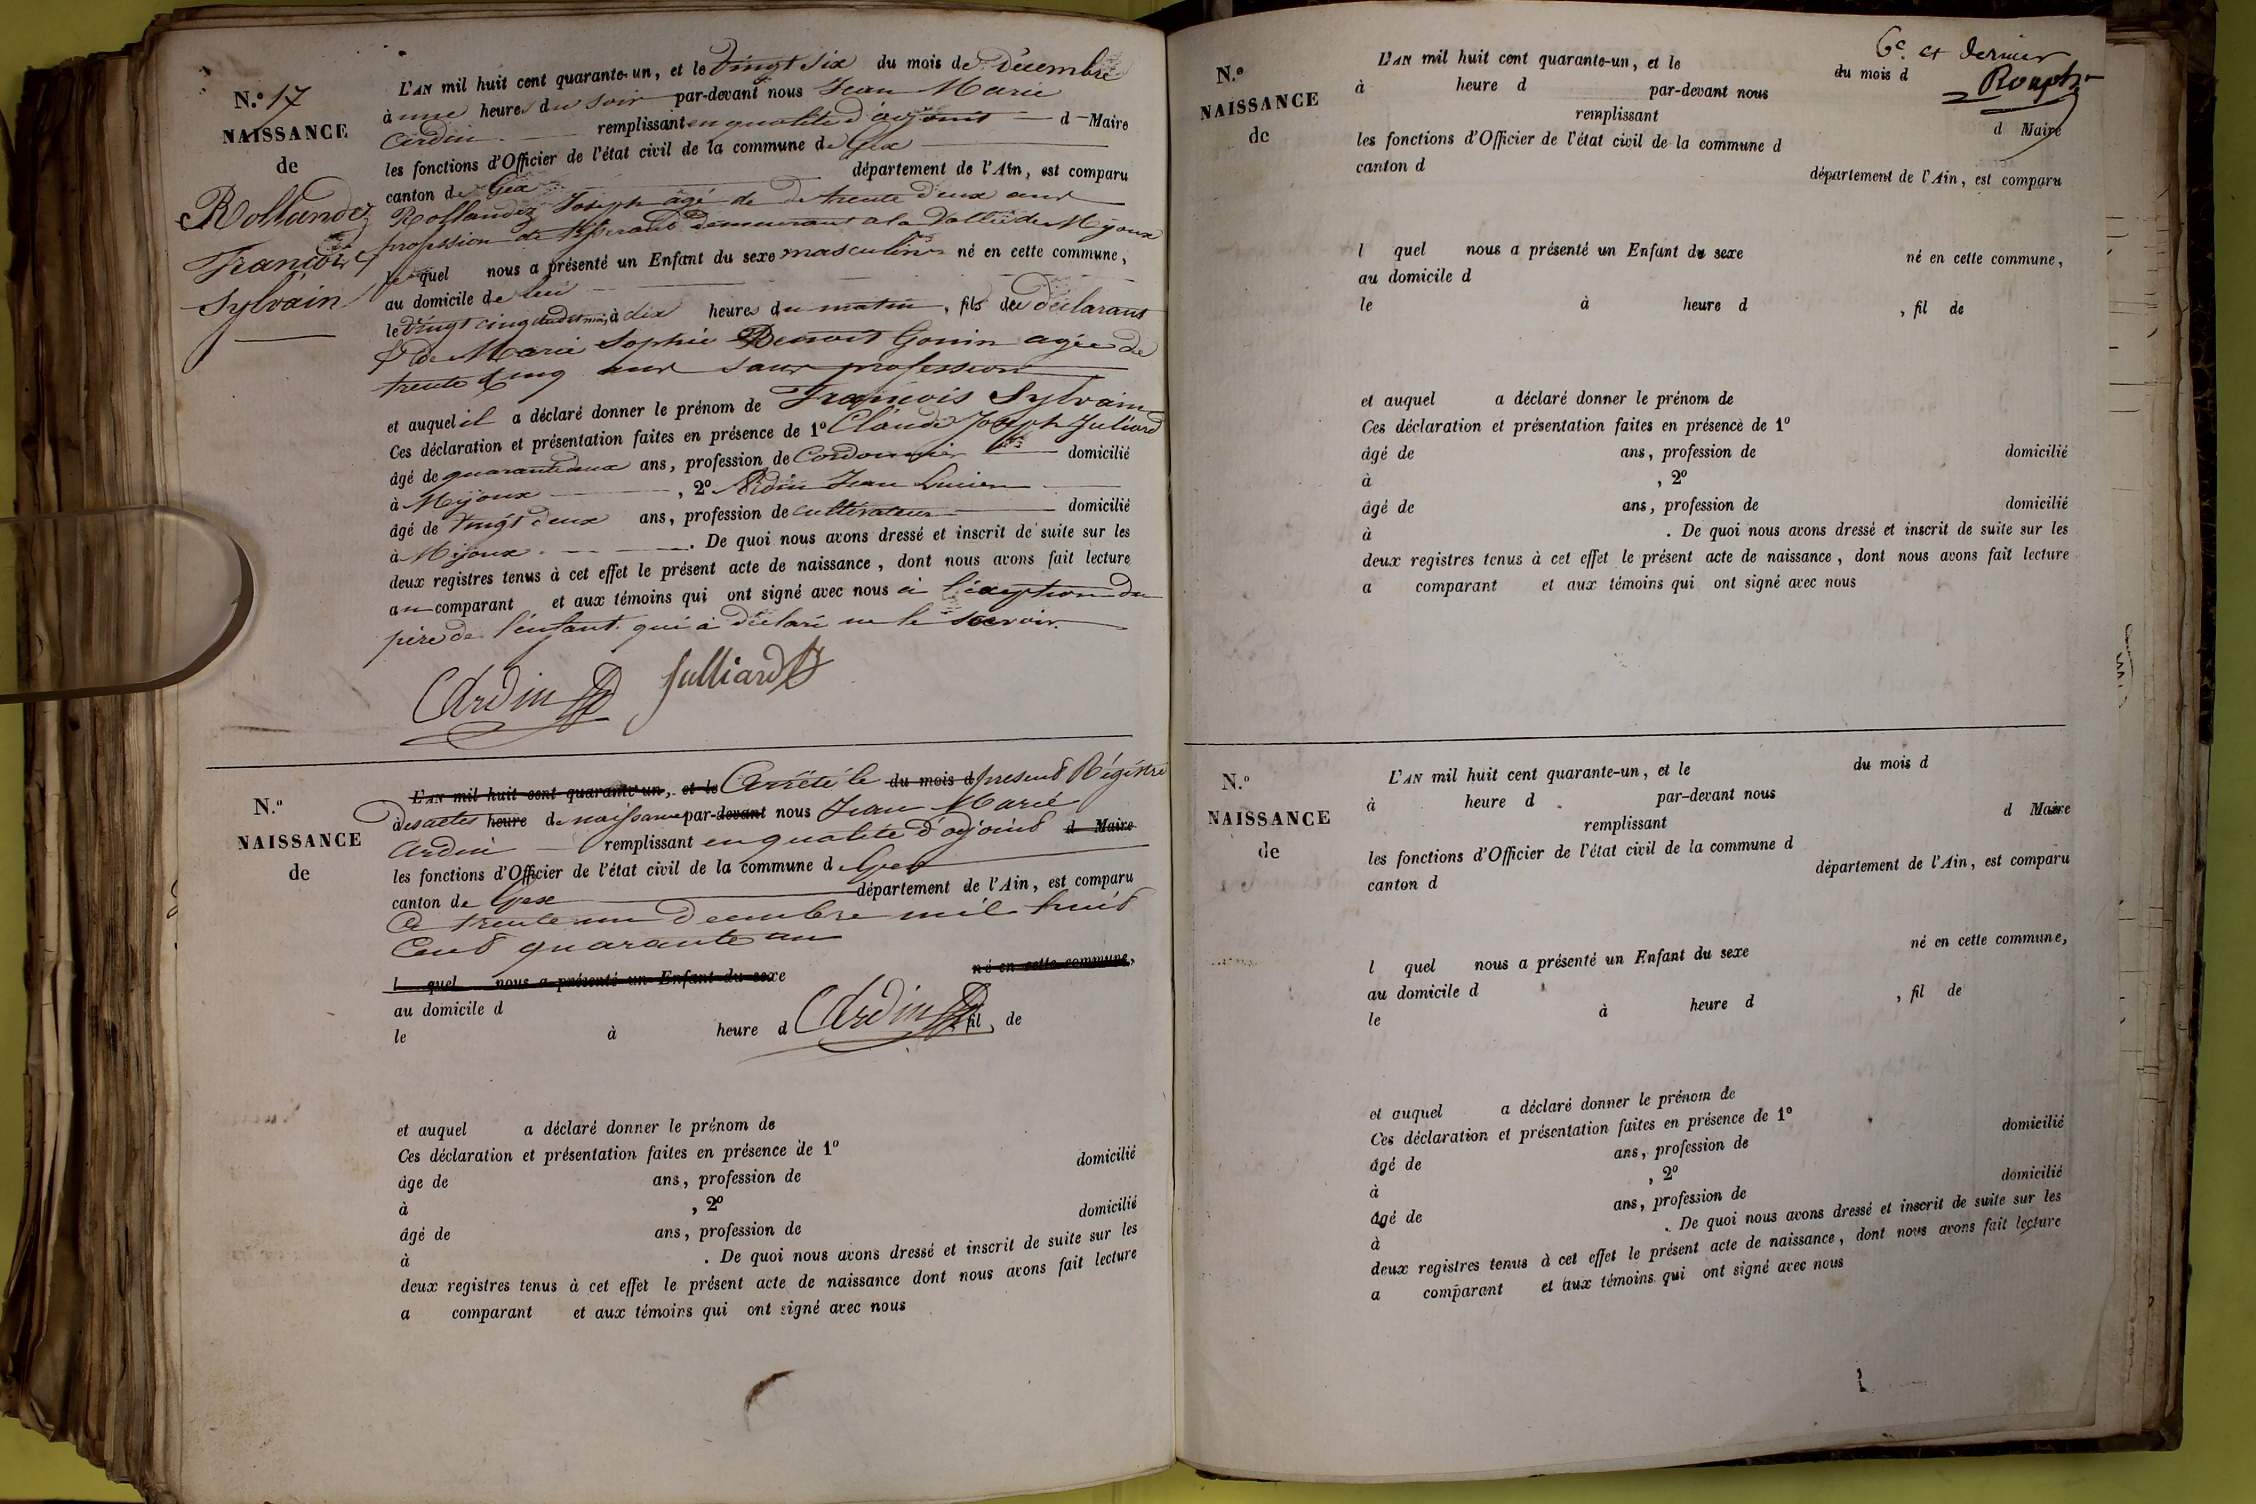 N.º 17
NAISSANCE
de
Rollandez
François
Sylvain
L'AN mil huit cent quarante-un, et le vingt six du mois de Décembre
à une heure du soir par-devant nous Jean Marie
Ardin remplissant en qualité d'adjoint d Maire
les fonctions d'Officier de l'état civil de la commune de Gex
canton de Gex département de l'Ain, est comparu
Rollandez Joseph âgé de de trente deux ans
profession de demeurant a la Vallée de Mijoux
le quel nous a présenté un Enfant du sexe masculin né en cette commune,
au domicile de lui
le vingt cinq dudit mois, à dix heures du matin, fils du déclarant
& de Marie Sophie Benoit Gonin agée de
trente cinq ans sans profession
et auquel il a déclaré donner le prénom de François Sylvain
Ces déclaration et présentation faites en présence de 1º Claude Joseph Juliard
âgé de quarante deux ans, profession de Cordonnier domicilié
à Mijoux, 2º Ardin Jean Lucien
âgé de vingt deux ans, profession de cultivateur domicilié
à Mijoux. De quoi nous avons dressé et inscrit de suite sur les
deux registres tenus à cet effet le présent acte de naissance, dont nous avons fait lecture
au comparant et aux témoins qui ont signé avec nous à l'exception du
père de l'enfant qui a déclaré ne le savoir.
Ardin Julliard
N.º
NAISSANCE
de
L'AN mil huit cent quarante-un, et le Arrêté le du mois d présent Régistre
à des actes heure de naissance par-devant nous Jean Marie
Ardin remplissant en qualité d'adjoint d Maire
les fonctions d'Officier de l'état civil de la commune d Gex
canton de Gex département de l'Ain, est comparu
Ce trente un Decembre mil huit
Cent quarante un
l quel nous a présenté un Enfant du sexe né en cette commune,
au domicile d
le à heure d Ardin, fil de
et auquel a déclaré donner le prénom de
Ces déclaration et présentation faites en présence de 1º
âge de ans, profession de domicilié
à , 2º
âgé de ans, profession de domicilié
à . De quoi nous avons dressé et inscrit de suite sur les
deux registres tenus à cet effet le présent acte de naissance dont nous avons fait lecture
a comparant et aux témoins qui ont signé avec nous
6e et dernier
N.º
NAISSANCE
de
L'AN mil huit cent quarante-un, et le du mois d
à heure d par-devant nous
remplissant d Maire
les fonctions d'Officier de l'état civil de la commune d
canton d département de l'Ain, est comparu
l quel nous a présenté un Enfant du sexe né en cette commune,
au domicile d
le à heure d , fil de
et auquel a déclaré donner le prénom de
Ces déclaration et présentation faites en présence de 1º
âgé de ans, profession de domicilié
à , 2º
âgé de ans, profession de domicilié
à . De quoi nous avons dressé et inscrit de suite sur les
deux registres tenus à cet effet le présent acte de naissance, dont nous avons fait lecture
a comparant et aux témoins qui ont signé avec nous
N.º
NAISSANCE
de
L'AN mil huit cent quarante-un, et le du mois d
à heure d par-devant nous
remplissant d Maire
les fonctions d'Officier de l'état civil de la commune d
canton d département de l'Ain, est comparu
l quel nous a présenté un Enfant du sexe né en cette commune,
au domicile d
le à heure d , fil de
et auquel a déclaré donner le prénom de
Ces déclaration et présentation faites en présence de 1º
âgé de ans, profession de domicilié
à , 2º
âgé de ans, profession de domicilié
à . De quoi nous avons dressé et inscrit de suite sur les
deux registres tenus à cet effet le présent acte de naissance, dont nous avons fait lecture
a comparant et aux témoins qui ont signé avec nous